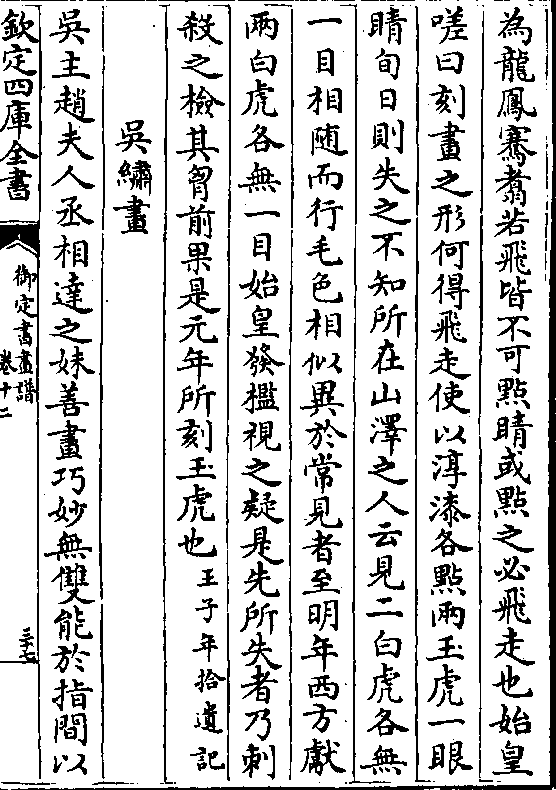 為龍鳳騫翥若飛皆不可點睛或點之必飛走也始皇
嗟曰刻畫之形何得飛走使以淳漆各點兩玉虎一眼
睛旬日則失之不知所在山澤之人云見二白虎各無
一目相随而行毛色相似異於常見者至明年西方獻
兩白虎各無一目始皇發檻視之疑是先所失者乃刺
殺之檢其胷前果是元年所刻玉虎也王子年拾遺記
吳繡畫
吳主趙夫人丞相達之妹善畫巧妙無雙能於指間以
欽定四庫全書
御定書畫譜
卷十二
三十七